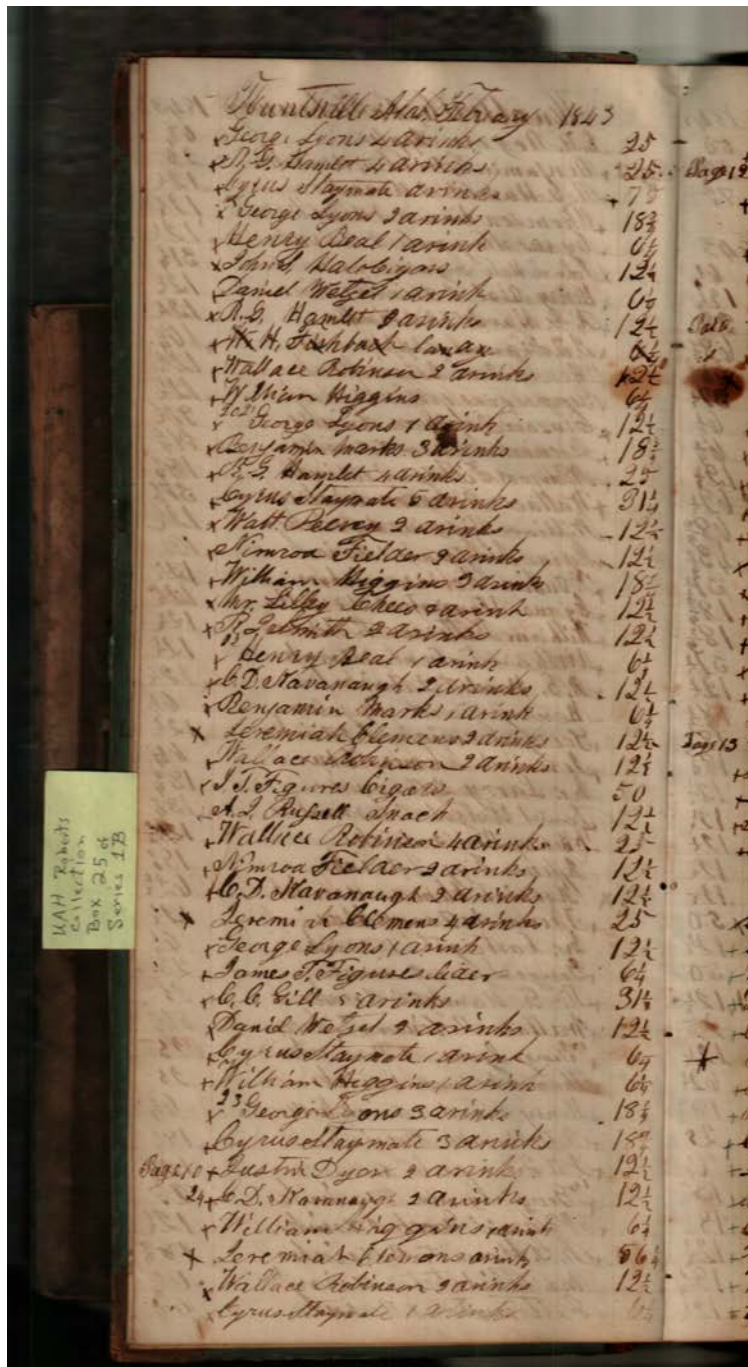 Huntsville Ala. February 1843
George Lyons 4 drinks 25
R. G. Hamlet 4 drinks 25
Page 12
Cyrus Staymate drinks 75
George Lyons 3 drinks 18 3/4
Henry Beal 1 drink 6 1/4
John S. 12 1/2
Daniel Wetzel 1 drink 6 1/4
R. G. Hamlet 2 drinks 12 1/2
W. H. Fishback 6 1/4
Wallace Robinson 2 drinks 12 1/2
William Higgins 6 1/4
George Lyons 1 drink 12 1/2
Benjamin Marks 3 drinks 18 3/4
R. G. Hamlet 4 drinks 25
Cyrus Staymate 5 drinks 31 1/4
Watt 2 drinks 12 1/2
Nimrod Fielder 2 drinks 12 1/2
William Higgins 3 drinks 18 3/4
Mr. Lilley drink 12 1/2
2 drinks 12 1/2
Henry Beal 1 drink 6 1/4
C. D. Kavanaugh 2 drinks 12 1/2
Benjamin Marks 1 drink 6 1/4
x Jeremiah Clemens 2 drinks 12 1/2
Page 13
Wallace Robinson 2 drinks 12 1/2
J. T. Figures Cigars 50
A. J. Russell Snack 12 1/2
Wallace Robinson 4 drinks 25
Nimrod Fielder 2 drinks 12 1/2
C. D. Kavanaugh 2 drinks 12 1/2
x Jeremiah Clemens 4 drinks 25
George Lyons 1 drink 12 1/2
James T. Figures Cider 6 1/4
C. C. Gill 5 drinks 31 1/4
David Wetzel 2 drinks 12 1/2
Cyrus Staymate 1 drink 6 1/4
William Higgins 1 drink 6 1/4
23 George Lyons 3 drinks 18 3/4
Cyrus Staymate 3 drinks 18 3/4
Page 210 Dyer 2 drinks 12 1/2
24 C. D. Kavanaugh 2 drinks 12 1/2
William Higgins 1 drink 6 1/4
x Jeremiah Clemens drink 56 1/4
Wallace Robinson 2 drinks 12 1/2
Cyrus Staymate 1 drinks 6 1/4
UAH Roberts
Collection
Box 25 of
Series 1B